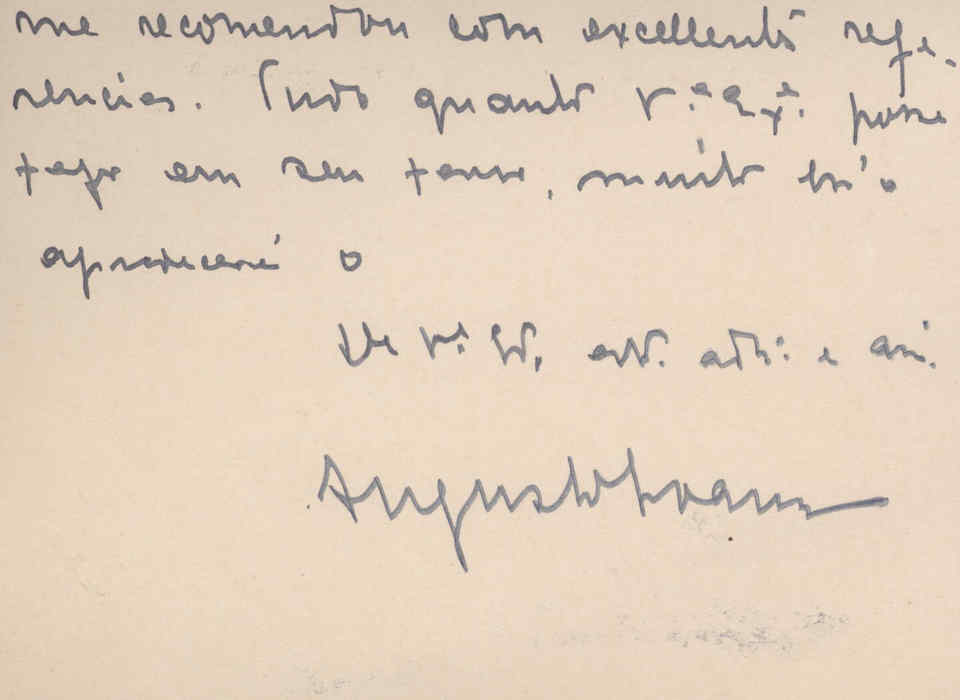 me recomendou com excellentes refe-
rencias. Tudo quanto V.ª Ex.ª possa
faça em seu favor, muito
agradecerá o
De V.ª att. adm.: e am.
Augusto